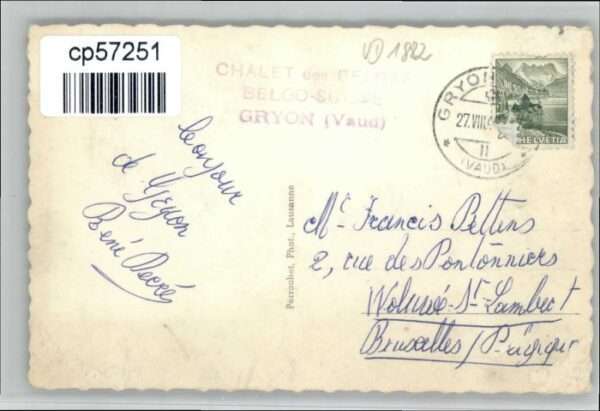 cp57251
VD 1882
CHALET des BELGES
BELGO-SUISSE
GRYON (Vaud)
GRYON
27.VIII.
11
(VAUD)
HELVETIA
bonjour
de Gryon
René
Perrochet, Phot., Lausanne
Mr Francis Pettens
2, rue des Pontonniers
Woluwé-St-Lambert
Bruxelles / Belgique